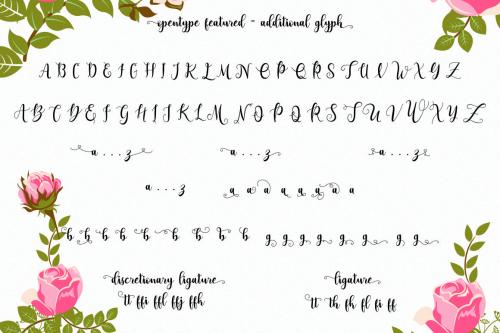 opentype featured - additional glyph
A B C D E F G H I J K L M N O P Q R S T U V W X Y Z
A B C D E F G H I J K L M N O P Q R S T U V W X Y Z
a . . . . z a . . . . z a . . . . z
a . . . . z a a a a a a a a
b b b b b b b b g g g g g g g g
discretionary ligature ligature
tt ffi ffl ffj ffh tt th fh fl fi ff